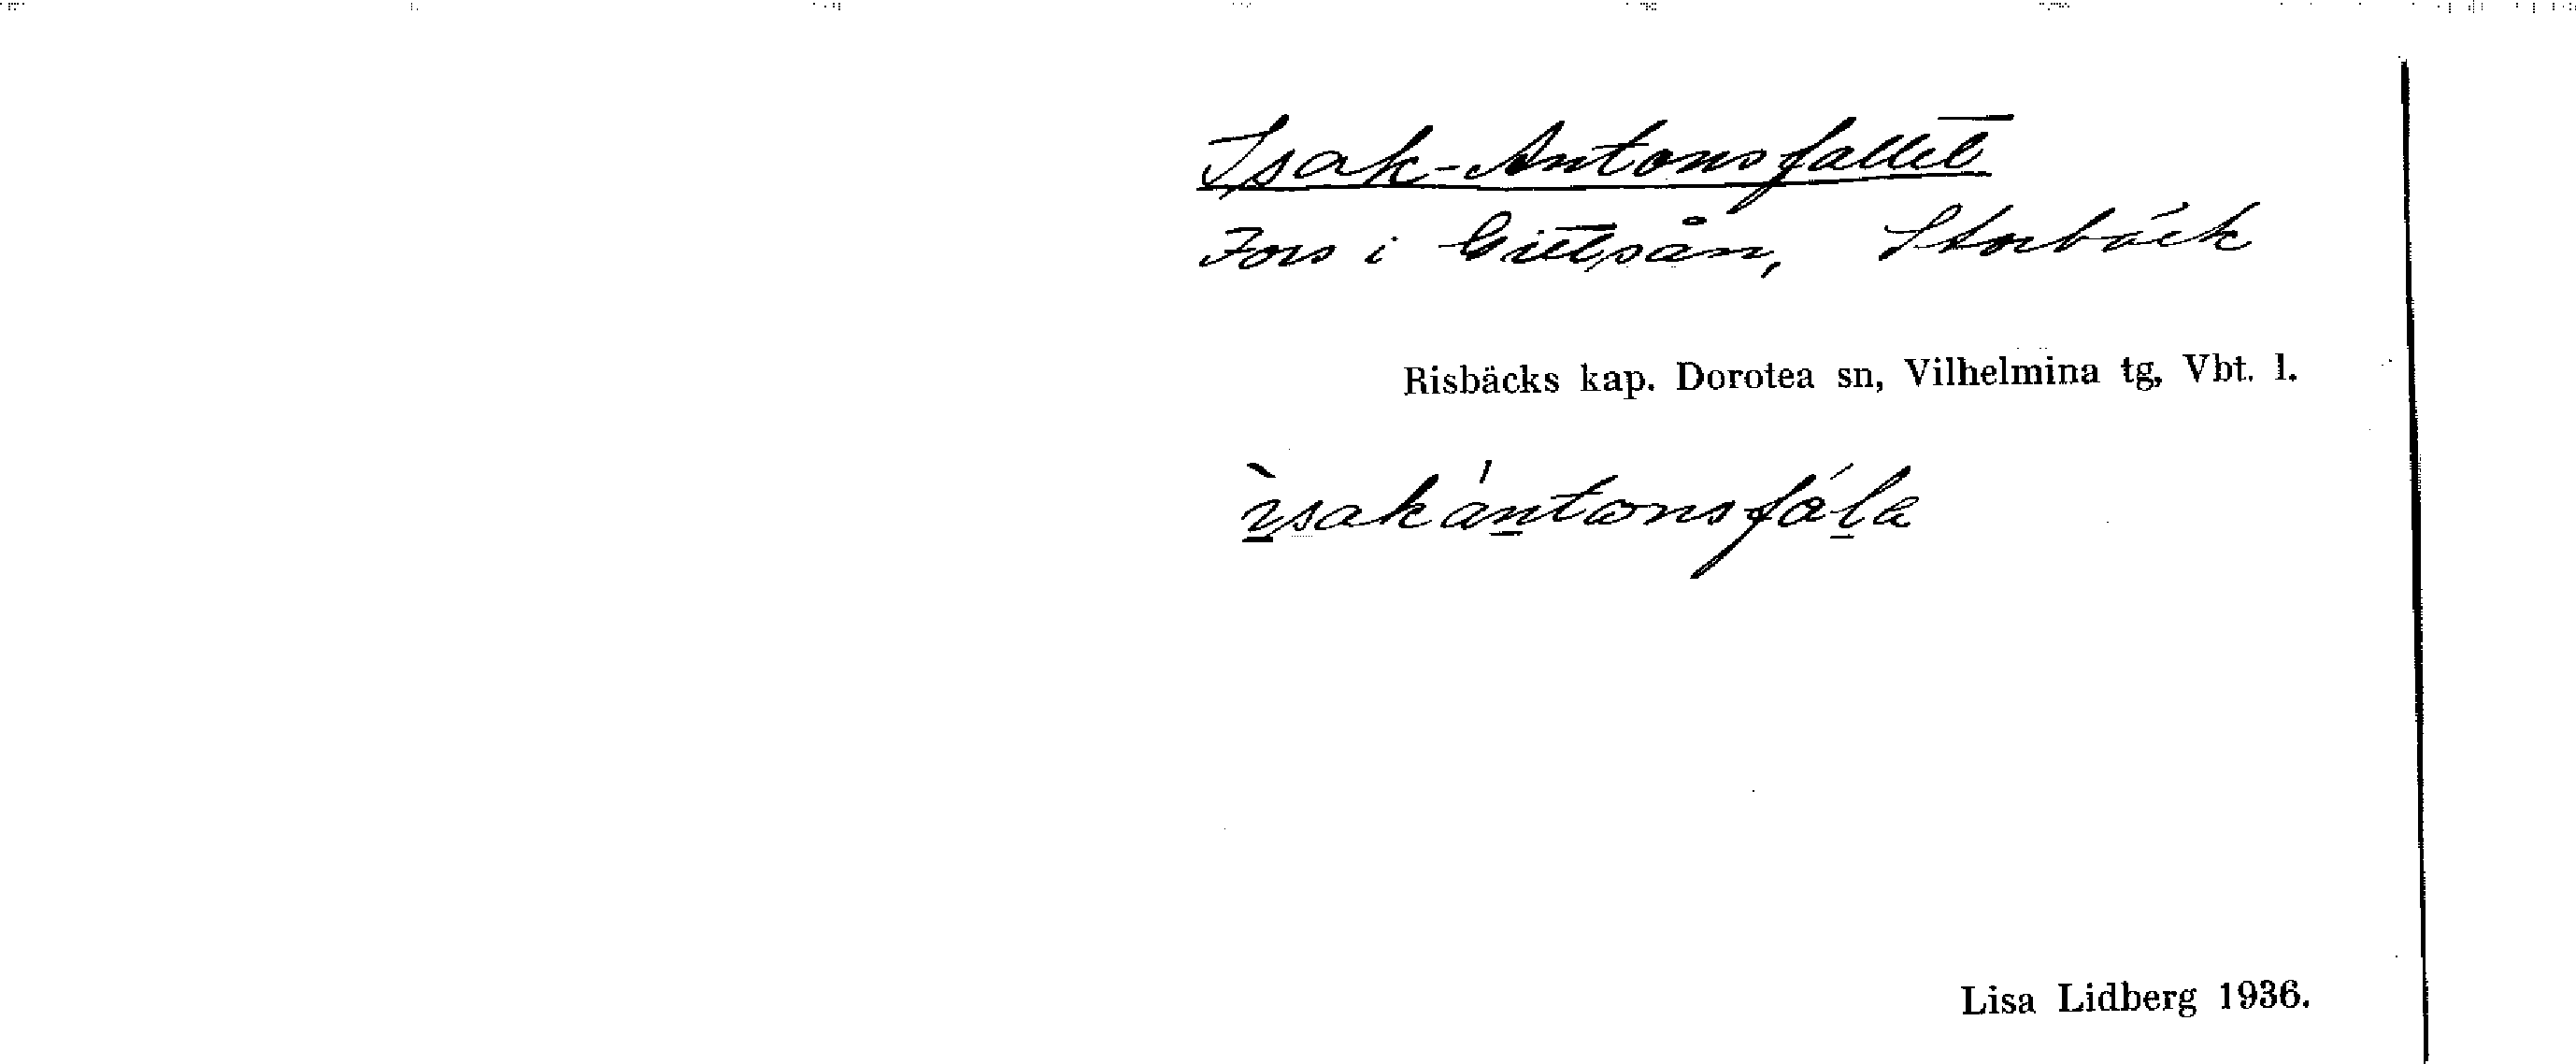 Isak-Antonsfallet
Fors i Gitsån, Storbäck
Risbäcks kap. Dorotea sn, Vilhelmina tg, Vbt. l.
ìsakántonsfála
Lisa Lidberg 1936.